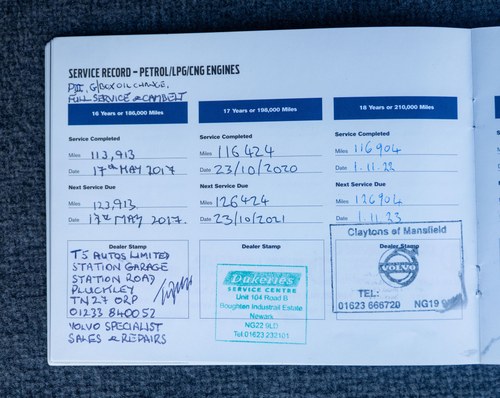 SERVICE RECORD – PETROL/LPG/CNG ENGINES
PIII, G/BOX OIL CHANGE,
FULL SERVICE & CAMBELT
16 Years or 186,000 Miles
Service Completed
Miles 113,913
Date 17th MAY 2017
Next Service Due
Miles 123,913
Date 17th MAY 2017.
Dealer Stamp
TS AUTOS LIMITED
STATION GARAGE
STATION ROAD
PLUCKLEY
TN27 0RP
01233 840052
VOLVO SPECIALIST
SALES & REPAIRS
17 Years or 198,000 Miles
Service Completed
Miles 116424
Date 23/10/2020
Next Service Due
Miles 126424
Date 23/10/2021
Dealer Stamp
Dukeries
SERVICE CENTRE
Unit 104 Road B
Boughton Industrial Estate
Newark
NG22 9LD
Tel: 01623
18 Years or 210,000 Miles
Service Completed
Miles 116904
Date 1.11.22
Next Service Due
Miles 126904
Date 1.11.23
Claytons of Mansfield
Dealer Stamp
VOLVO
TEL:
01623 666720 NG19